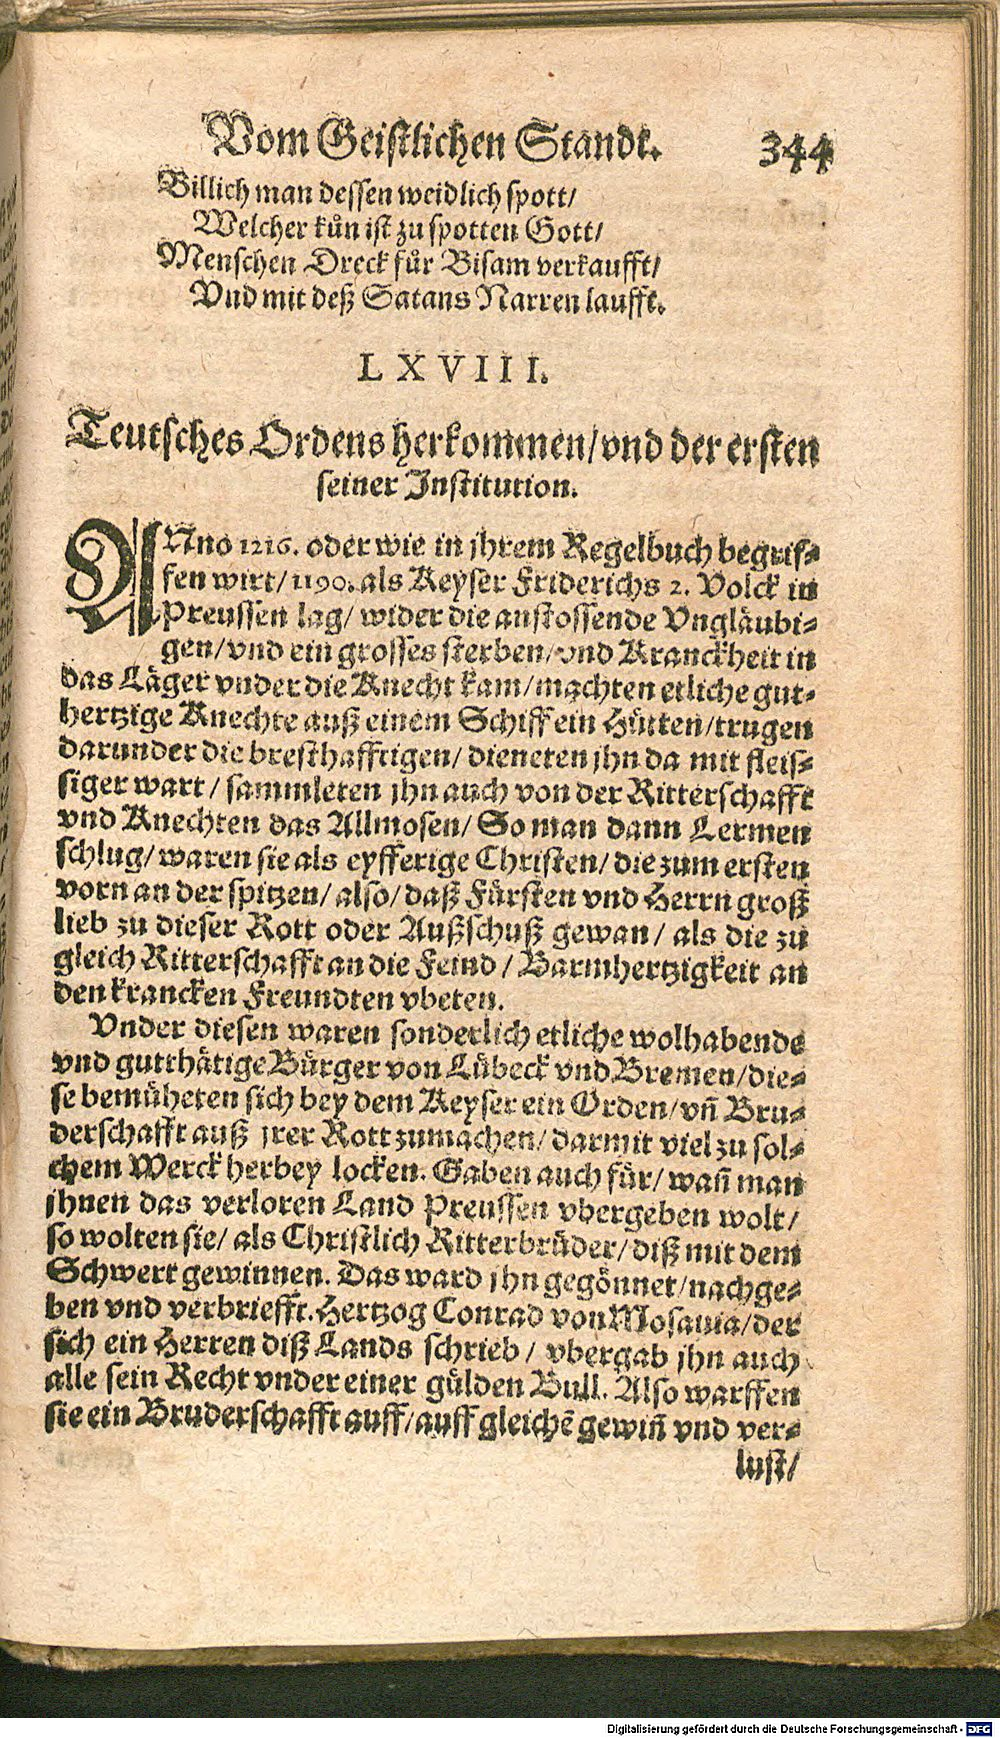 Vom Geistlichen Standt. 344
Billich man dessen weidlich spott/
Welcher kůn ist zu spotten Gott/
Menschen Dreck fůr Bisam verkaufft/
Vnd mit deß Satans Narren laufft.
LXVIII.
Teutsches Ordens herkommen/vnd der ersten
seiner Institution.
ANno 1216. oder wie in jhrem Regelbuch begrif-
fen wirt/1190. als Keyser Friderichs 2. Volck in
Preussen lag/ wider die anstossende Vngläubi-
gen/vnd ein grosses sterben/vnd Kranckheit in
das Läger vnder die Knecht kam/machten etliche gut-
hertzige Knechte auß einem Schiff ein Hütten/trugen
darunder die bresthafftigen/ dieneten jhn da mit fleis-
siger wart/ sammleten jhn auch von der Ritterschafft
vnd Knechten das Allmosen/ So man dann Lermen
schlug/ waren sie als eyfferige Christen/ die zum ersten
vorn an der spitzen/ also/ daß Fürsten vnd Herrn groß
lieb zu dieser Rott oder Außschuß gewan/ als die zu
gleich Ritterschafft an die Feind/ Barmhertzigkeit an
den krancken Freundten vbeten.
Vnder diesen waren sonderlich etliche wolhabende
vnd gutthätige Bürger von Lübeck vnd Bremen/die-
se bemüheten sich bey dem Keyser ein Orden/vñ Bru-
derschafft auß jrer Rott zumachen/ darmit viel zu sol-
chem Werck herbey locken. Gaben auch für/ wañ man
jhnen das verloren Land Preussen vbergeben wolt/
so wolten sie/ als Christlich Ritterbrüder/ diß mit dem
Schwert gewinnen. Das ward jhn gegönnet/nachge-
ben vnd verbriefft. Hertzog Conrad von Mosauia/der
sich ein Herren diß Lands schrieb/ vbergab jhn auch
alle sein Recht vnder einer gülden Bull. Also warffen
sie ein Bruderschafft auff/auff gleichẽ gewiñ vnd ver-
lust/
Digitalisierung gefördert durch die Deutsche Forschungsgemeinschaft - DFG